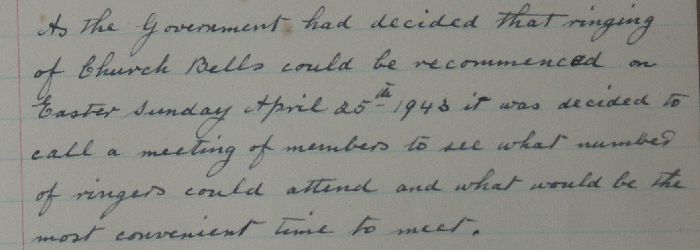 As the Government had decided that ringing
of Church Bells could be recommenced on
Easter Sunday April 25th 1943 it was decided to
call a meeting of members to see what number
of ringers could attend and what would be the
most convenient time to meet.